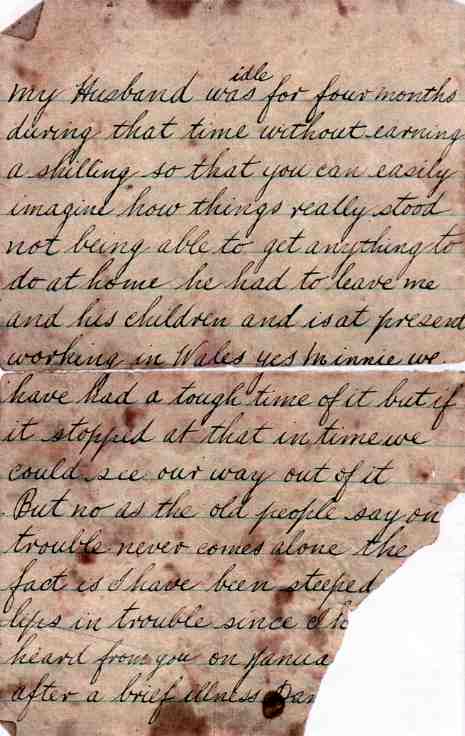 idle
my Husband was for four months
during that time without earning
a shilling so that you can easily
imagine how things really stood
not being able to get anything to
do at home he had to leave me
and his children and is at present
working in Wales yes Minnie we
have had a tough time of it but if
it stopped at that in time we
could see our way out of it
But no as the old people say on
trouble never comes alone the
fact is I have been steeped
lips in trouble since I h
heard from you on Janua
after a brief illness Dan